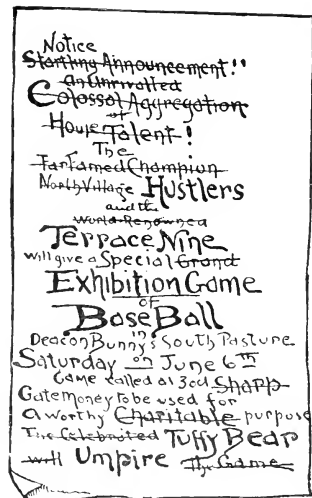 Notice
Startling Announcement!!
an Unrivalled
Colossal Aggregation
of
House Talent!
The
Far famed Champion
North Village Hustlers
and the
World Renowned
Terrace Nine
will give a Special Grand
Exhibition Game
of
Base Ball
in
Deacon Bunny's South Pasture
Saturday on June 6th
Game called at 3 o'cl Sharp
Gate money to be used for
a worthy Charitable purpose
The Celebrated Tuffy Bear
will Umpire The Game